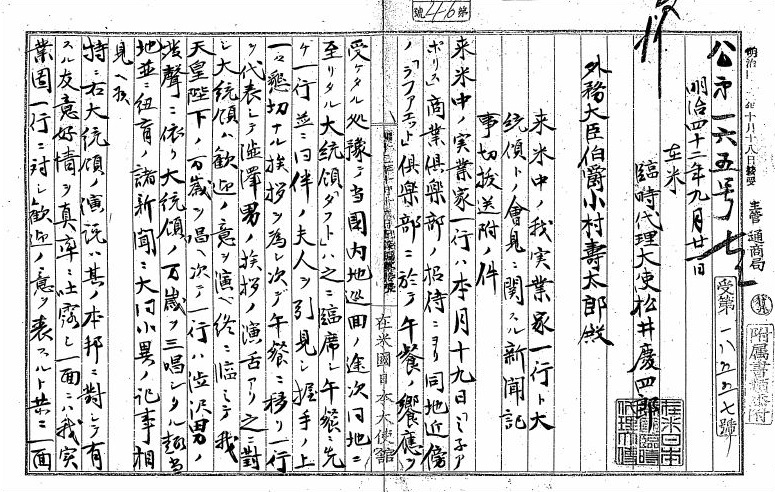 第46號
明治 年十月十八日接受
主管 通商局
公第一六五号
受第一八五五七號
附属書類添付
明治四十二年九月廿一日
在米
臨時代理大使松井慶四郎
在米日本臨時代理大使
外務大臣伯爵小村壽太郎殿
来米中ノ我実業家一行ト大
統領トノ會見ニ関スル新聞記
事切抜送附ノ件
来米中ノ実業家一行ハ本月十九日「ミネア
ポリス」商業倶楽部ノ招待ニヨリ同地近傍
ノ「ラファエット」倶楽部ニ於テ午餐ノ饗應ヲ
在米國日本大使館
受ケタル処豫テ当国内地巡回ノ途次同地ニ
至リタル大統領「タフト」ハ之ニ臨席シ午餐ニ先
ケ一行並ニ同伴ノ夫人ヲ引見シ握手ノ上
一々懇切ナル挨拶ヲ為シ次テ午餐ニ移リ一行
ヲ代表シテ澁澤男ノ挨拶ノ演舌アリ之ニ對
シ大統領ハ歓迎ノ意ヲ演ヘ終ニ臨ミテ我
天皇陛下ノ万歳ヲ唱ヘ次テ一行ハ渋沢男ノ
発聲ニ依リ大統領ノ万歳ヲ三唱シタル趣当
地並ニ紐育ノ諸新聞ニ大同小異ノ記事相
見ヘ候
特ニ右大統領ノ演説ハ其ノ本邦ニ對シテ有
スル友意好情ヲ真率ニ吐露シ一面ニハ我実
業団一行ニ対シ歓迎ノ意ヲ表スルト共ニ一面